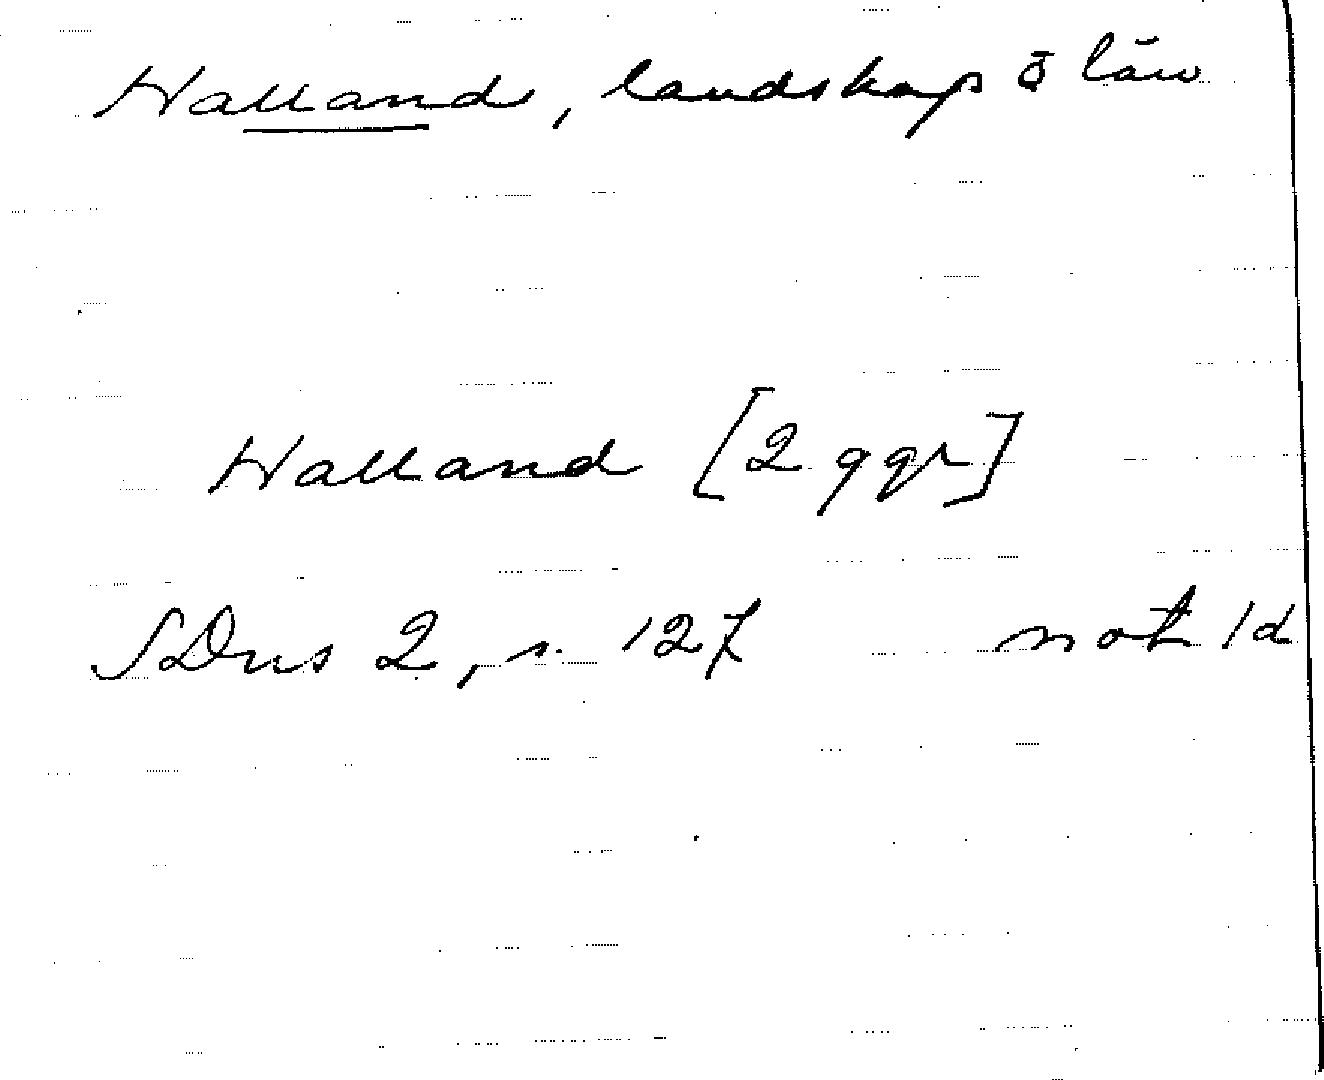 Halland, landskap o län
Halland [2 ggr]
SDns 2, s. 127 not 1d